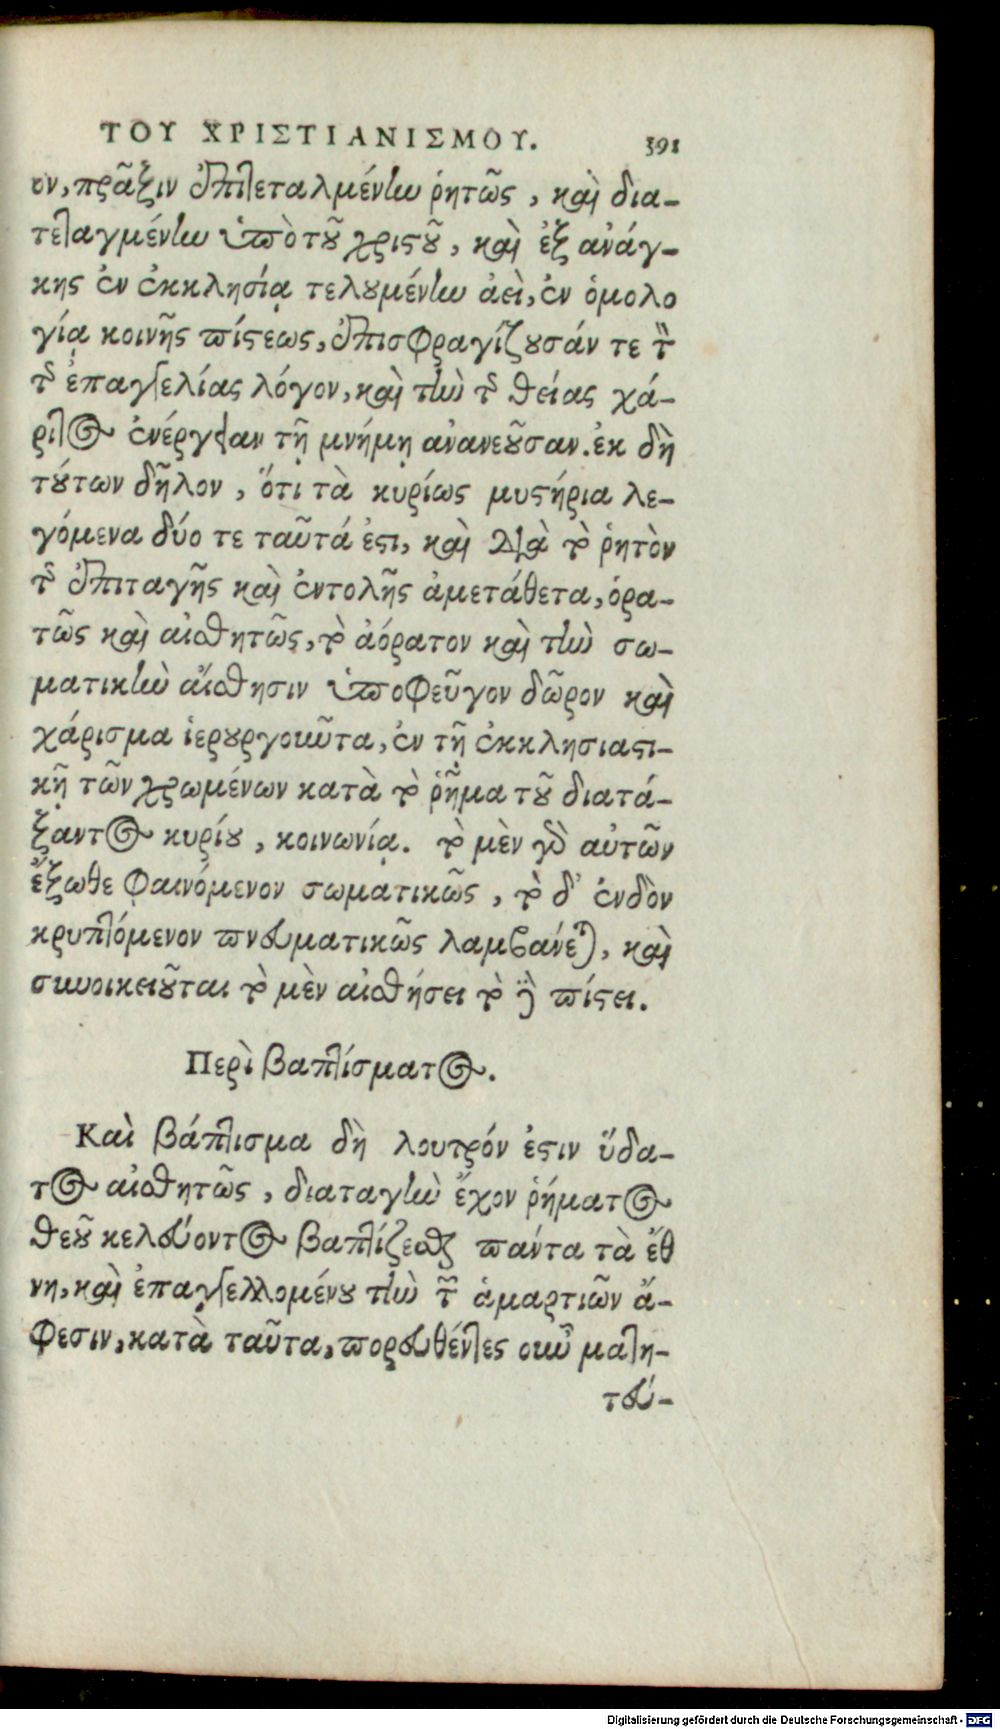 ΤΟΥ ΧΡΙΣΤΙΑΝΙΣΜΟΥ. 391
ον, πρᾶξιν ἐπιτεταλμένην ῥητῶς, καὶ δια-
τεταγμένην ὑπὸ τοῦ χριστοῦ, καὶ ἐξ ἀνάγ-
κης ἐν ἐκκλησίᾳ τελουμένην ἀεὶ, ἐν ὁμολο
γίᾳ κοινῆς πίστεως, ἐπισφραγίζουσάν τε τὸν
τῆς ἐπαγγελίας λόγον, καὶ τὴν τῆς θείας χά-
ριτος ἐνέργειαν τῇ μνήμῃ ἀνανεοῦσαν. ἐκ δὴ
τούτων δῆλον, ὅτι τὰ κυρίως μυστήρια λε-
γόμενα δύο τε ταῦτά ἐστι, καὶ διὰ τὸ ῥητὸν
τῆς ἐπιταγῆς καὶ ἐντολῆς ἀμετάθετα, ὁρα-
τῶς καὶ αἰσθητῶς, τὸ ἀόρατον καὶ τὴν σω-
ματικὴν αἴσθησιν ὑποφεῦγον δῶρον καὶ
χάρισμα ἱερουργοῦντα, ἐν τῇ ἐκκλησιαστι-
κῇ τῶν χρωμένων κατὰ τὸ ῥῆμα τοῦ διατά-
ξαντος κυρίου, κοινωνίᾳ. τὸ μὲν γὰρ αὐτῶν
ἔξωθε φαινόμενον σωματικῶς, τὸ δ' ἐνδὸν
κρυπτόμενον πνευματικῶς λαμβάνεται, καὶ
συνοικειοῦται τὸ μὲν αἰσθήσει τὸ δὲ πίστει.
Περὶ βαπτίσματος.
Καὶ βάπτισμα δὴ λουτρόν ἐστιν ὕδα-
τος αἰσθητῶς, διαταγὴν ἔχον ῥήματος
θεοῦ κελεύοντος βαπτίζεσθαι πάντα τὰ ἔθ
νη, καὶ ἐπαγγελλομένου τὴν τῶν ἁμαρτιῶν ἄ-
φεσιν, κατὰ ταῦτα, πορευθέντες οὖν μαθη-
τεύ-
Digitalisierung gefördert durch die Deutsche Forschungsgemeinschaft - DFG